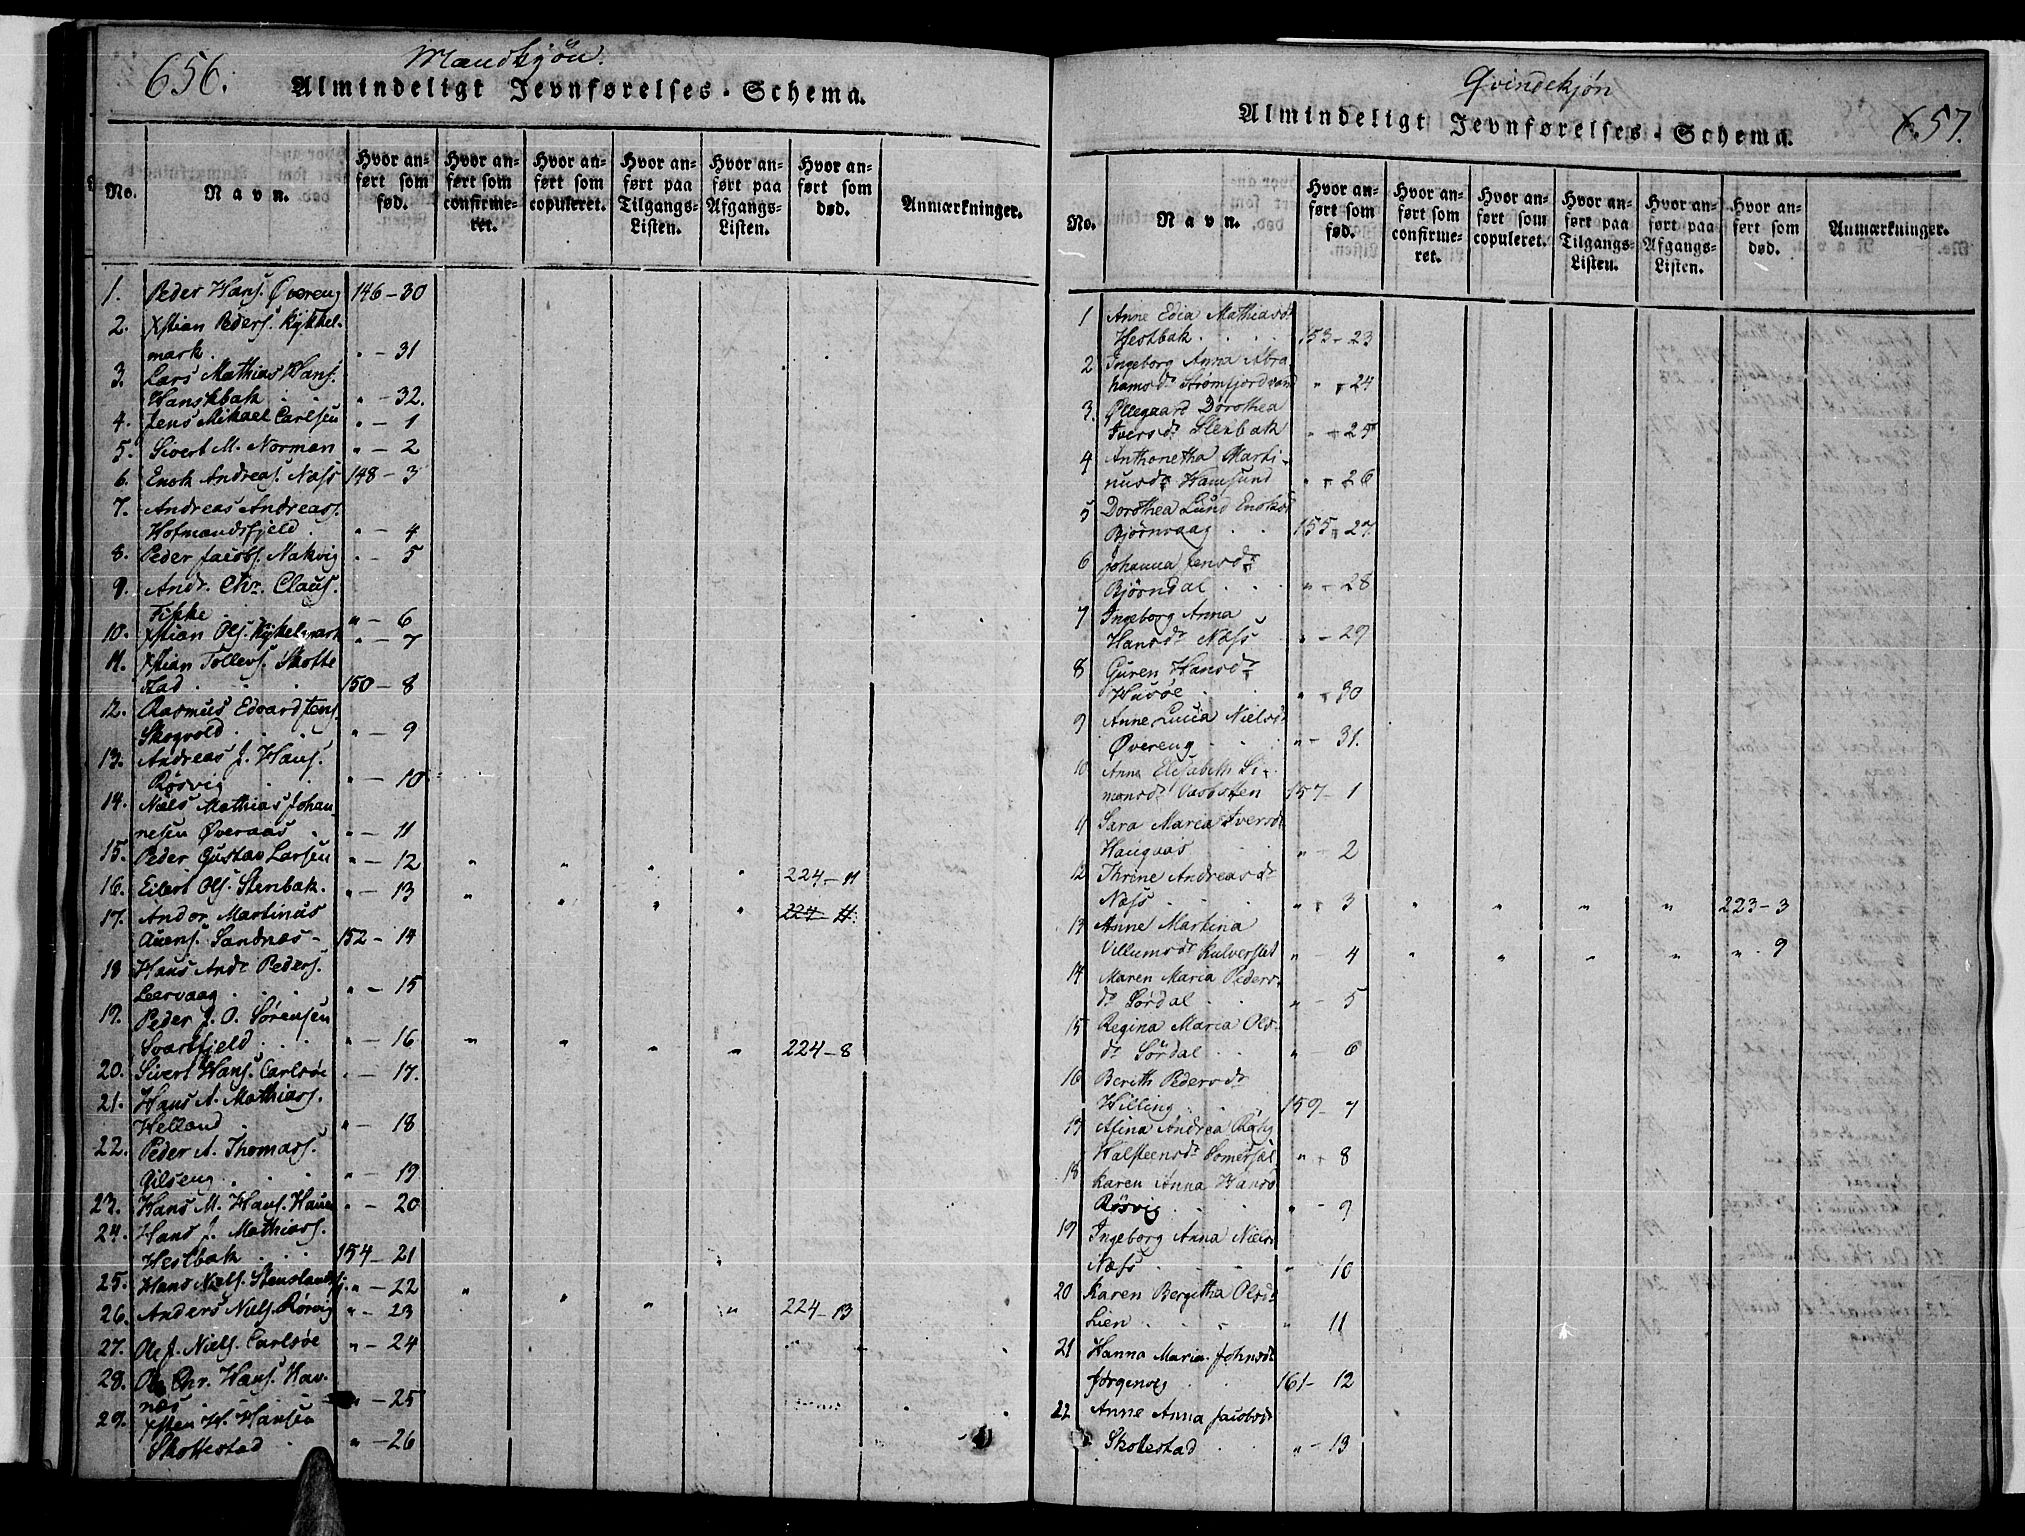 656.
Mandkjøn.
Almindeligt Jevnførelses-Schema.
No.
Navn.
Hvor anført som fød.
Hvor anført som confirmeret.
Hvor anført som copuleret.
Hvor anført paa Tilgangs-Listen.
Hvor anført paa Afgangs-Listen.
Hvor anført som død.
Anmærkninger.
1. Peder Hans. Øvereng 146-30
2. Xstian Peders. Kykkel-
mark. " - 31
3. Lars Mathias Hans.
Hanskbak . . " - 32.
4. Jens Mikael Carlsen " - 1
5. Sivert M. Norman " - 2
6. Enok Andreas. Næss 148-3
7. Andreas Andreas.
Hofmandsfjeld . " - 4
8. Peder Jacobs. Nakvig " - 5
9. Andr. Chr. Claus.
" - 6
10. Xstian Ols. Kykkelmark " - 7
11. Xstian Tollevs. Skotte
stad . . 150-8
12. Rasmus Edvard Jens.
Skogvold . . . " - 9
13. Andreas J. Hans.
Røsvig . " - 10
14. Niels Mathias Johan-
nesen Øveraas . " - 11
15. Peder Gustav Larsen " - 12 " " " " 224-11
16. Eilert Ols. Stenbak. " - 13 " " " " 224-11.
17. Andor Martinus
Auens. Sandnæs - 152-14
18 Hans Andr Peders.
Leervaag . . . " - 15
19. Peder J. O. Sørensen
Svartfjeld . . . " - 16 " " " " 224-8
20. Sivert Hans. Carlsøe " - 17.
21. Hans A. Mathias.
Helland . " - 18
22. Peder A. Thomas.
Gilseng . . . " - 19
23. Hans M. Hans. " - 20
24. Hans J. Mathias.
Hestbak . . . 154-21
25. Hans Niels. Stenslandsfj. " - 22 " " " " 224-13
26. Anders Niels. Rørvig " - 23
27. Ole J. Niels. Carlsøe " - 24
28. Ole Chr. Hans. Hav-
næs . . " - 25
29. Xsten H. Hansen
Skottestad . " - 26
Qvindekjøn
657.
Almindeligt Jevnførelses-Schema.
No.
Navn.
Hvor anført som fød.
Hvor anført som confirmeret.
Hvor anført som copuleret.
Hvor anført paa Tilgangs-Listen.
Hvor anført paa Afgangs-Listen.
Hvor anført som død.
Anmærkninger.
1 Anne Edia Mathiasdr
Hestbak . . . . 153-23
2 Ingeborg Anna Abra
hamsdr Strømfjordvand " - 24
3. Øllegaard Dorothea
Iversdr Stenbak " - 25
4 Anthonetha Marti-
nusdr Hamsund " - 26
5 Dorothea Lund Enoksdr
Bjørnvaag . . 155-27
6 Johanna Jensdr
Bjørndal . . . " - 28
7 Ingeborg Anna
Hansdr Næss " - 29
8 Guren Hansdr
Husøe . . " - 30
9 Anne Lucia Nielsdr
Øvereng . . . " - 31.
10 Anna Elisabeth Si-
monsdr Vasbotten 157-1
11 Sara Maria Iversdr
Haugaas . . " - 2
12 Thrine Andreasdr
Næss . . . . " - 3 " " " " 223-3
13 Anne Martina
Villumsdr Kulverstad " - 4 " " " " " . 9
14 Maren Maria Peders-
dr Sørdal . . " - 5
15 Regina Maria Ols-
dr Sørdal . . " - 6
16 Berith Pedersdr
Willing . . . 159-7
17 Alina Andrea
Halsteensdr Somersæl " - 8
18 Karen Anna Hans
Røsvig . . . " - 9
19 Ingeborg Anna Niels
Næss . . . . " 10
20 Karen Bergitha Olsdr
Lien . . . . " 11
21 Hanna Maria Johnsdr
Jørgenvig . . 161-12
22 Anne Anna Jacobsdr
Skottestad . . " - 13